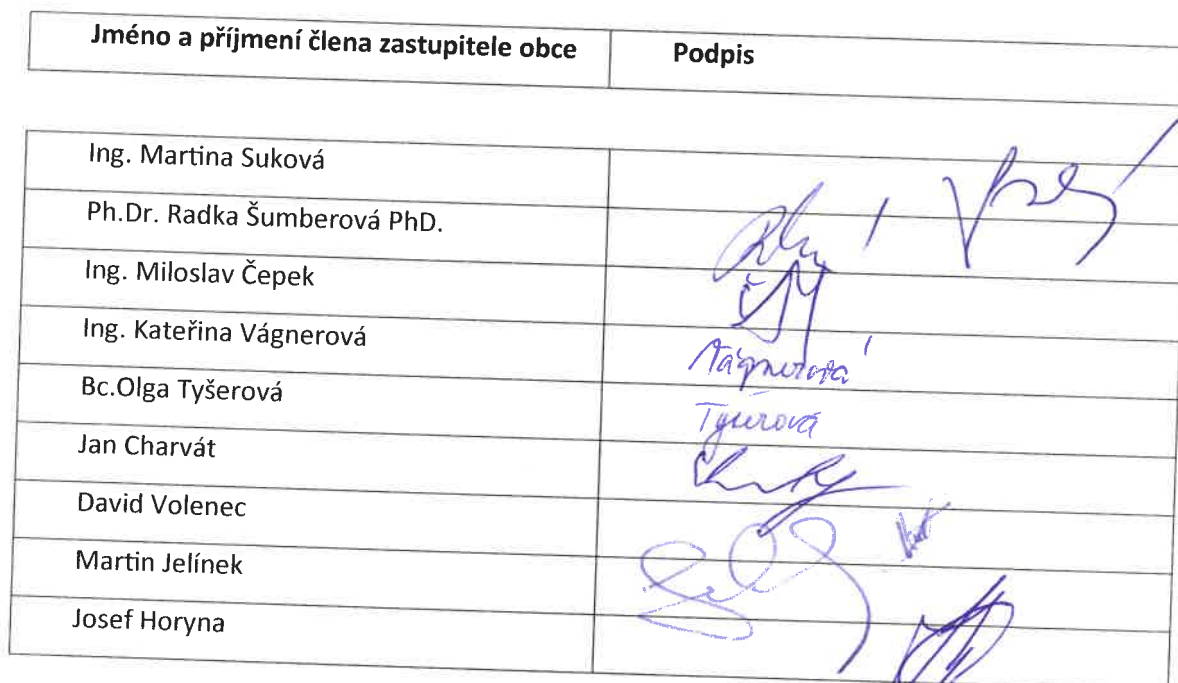 Jméno a příjmení člena zastupitele obce Podpis
Ing. Martina Suková
Ph.Dr. Radka Šumberová PhD.
Ing. Miloslav Čepek
Ing. Kateřina Vágnerová Vágnerová
Bc.Olga Tyšerová Tyšerová
Jan Charvát
David Volenec
Martin Jelínek
Josef Horyna